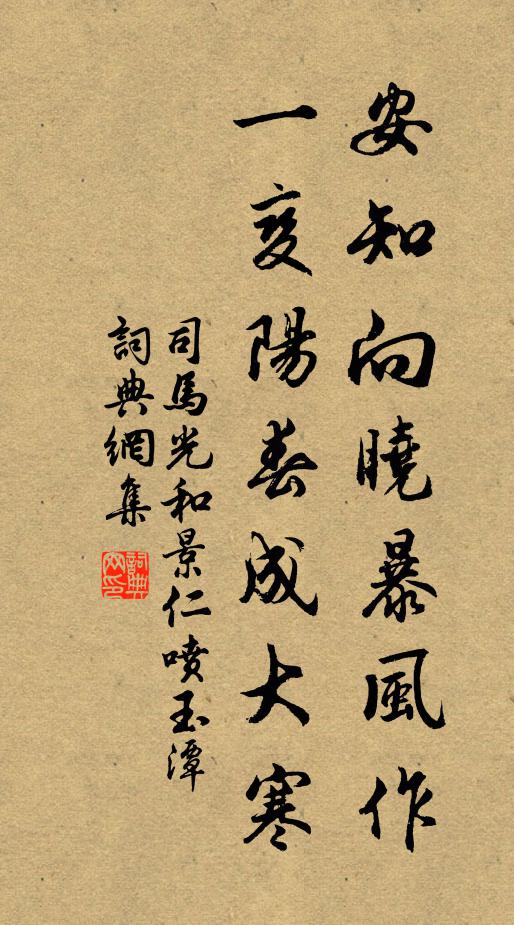 安知向曉暴風作
一变陽春成大寒
司馬光和景仁噴玉潭
詞典網集
詞典网印